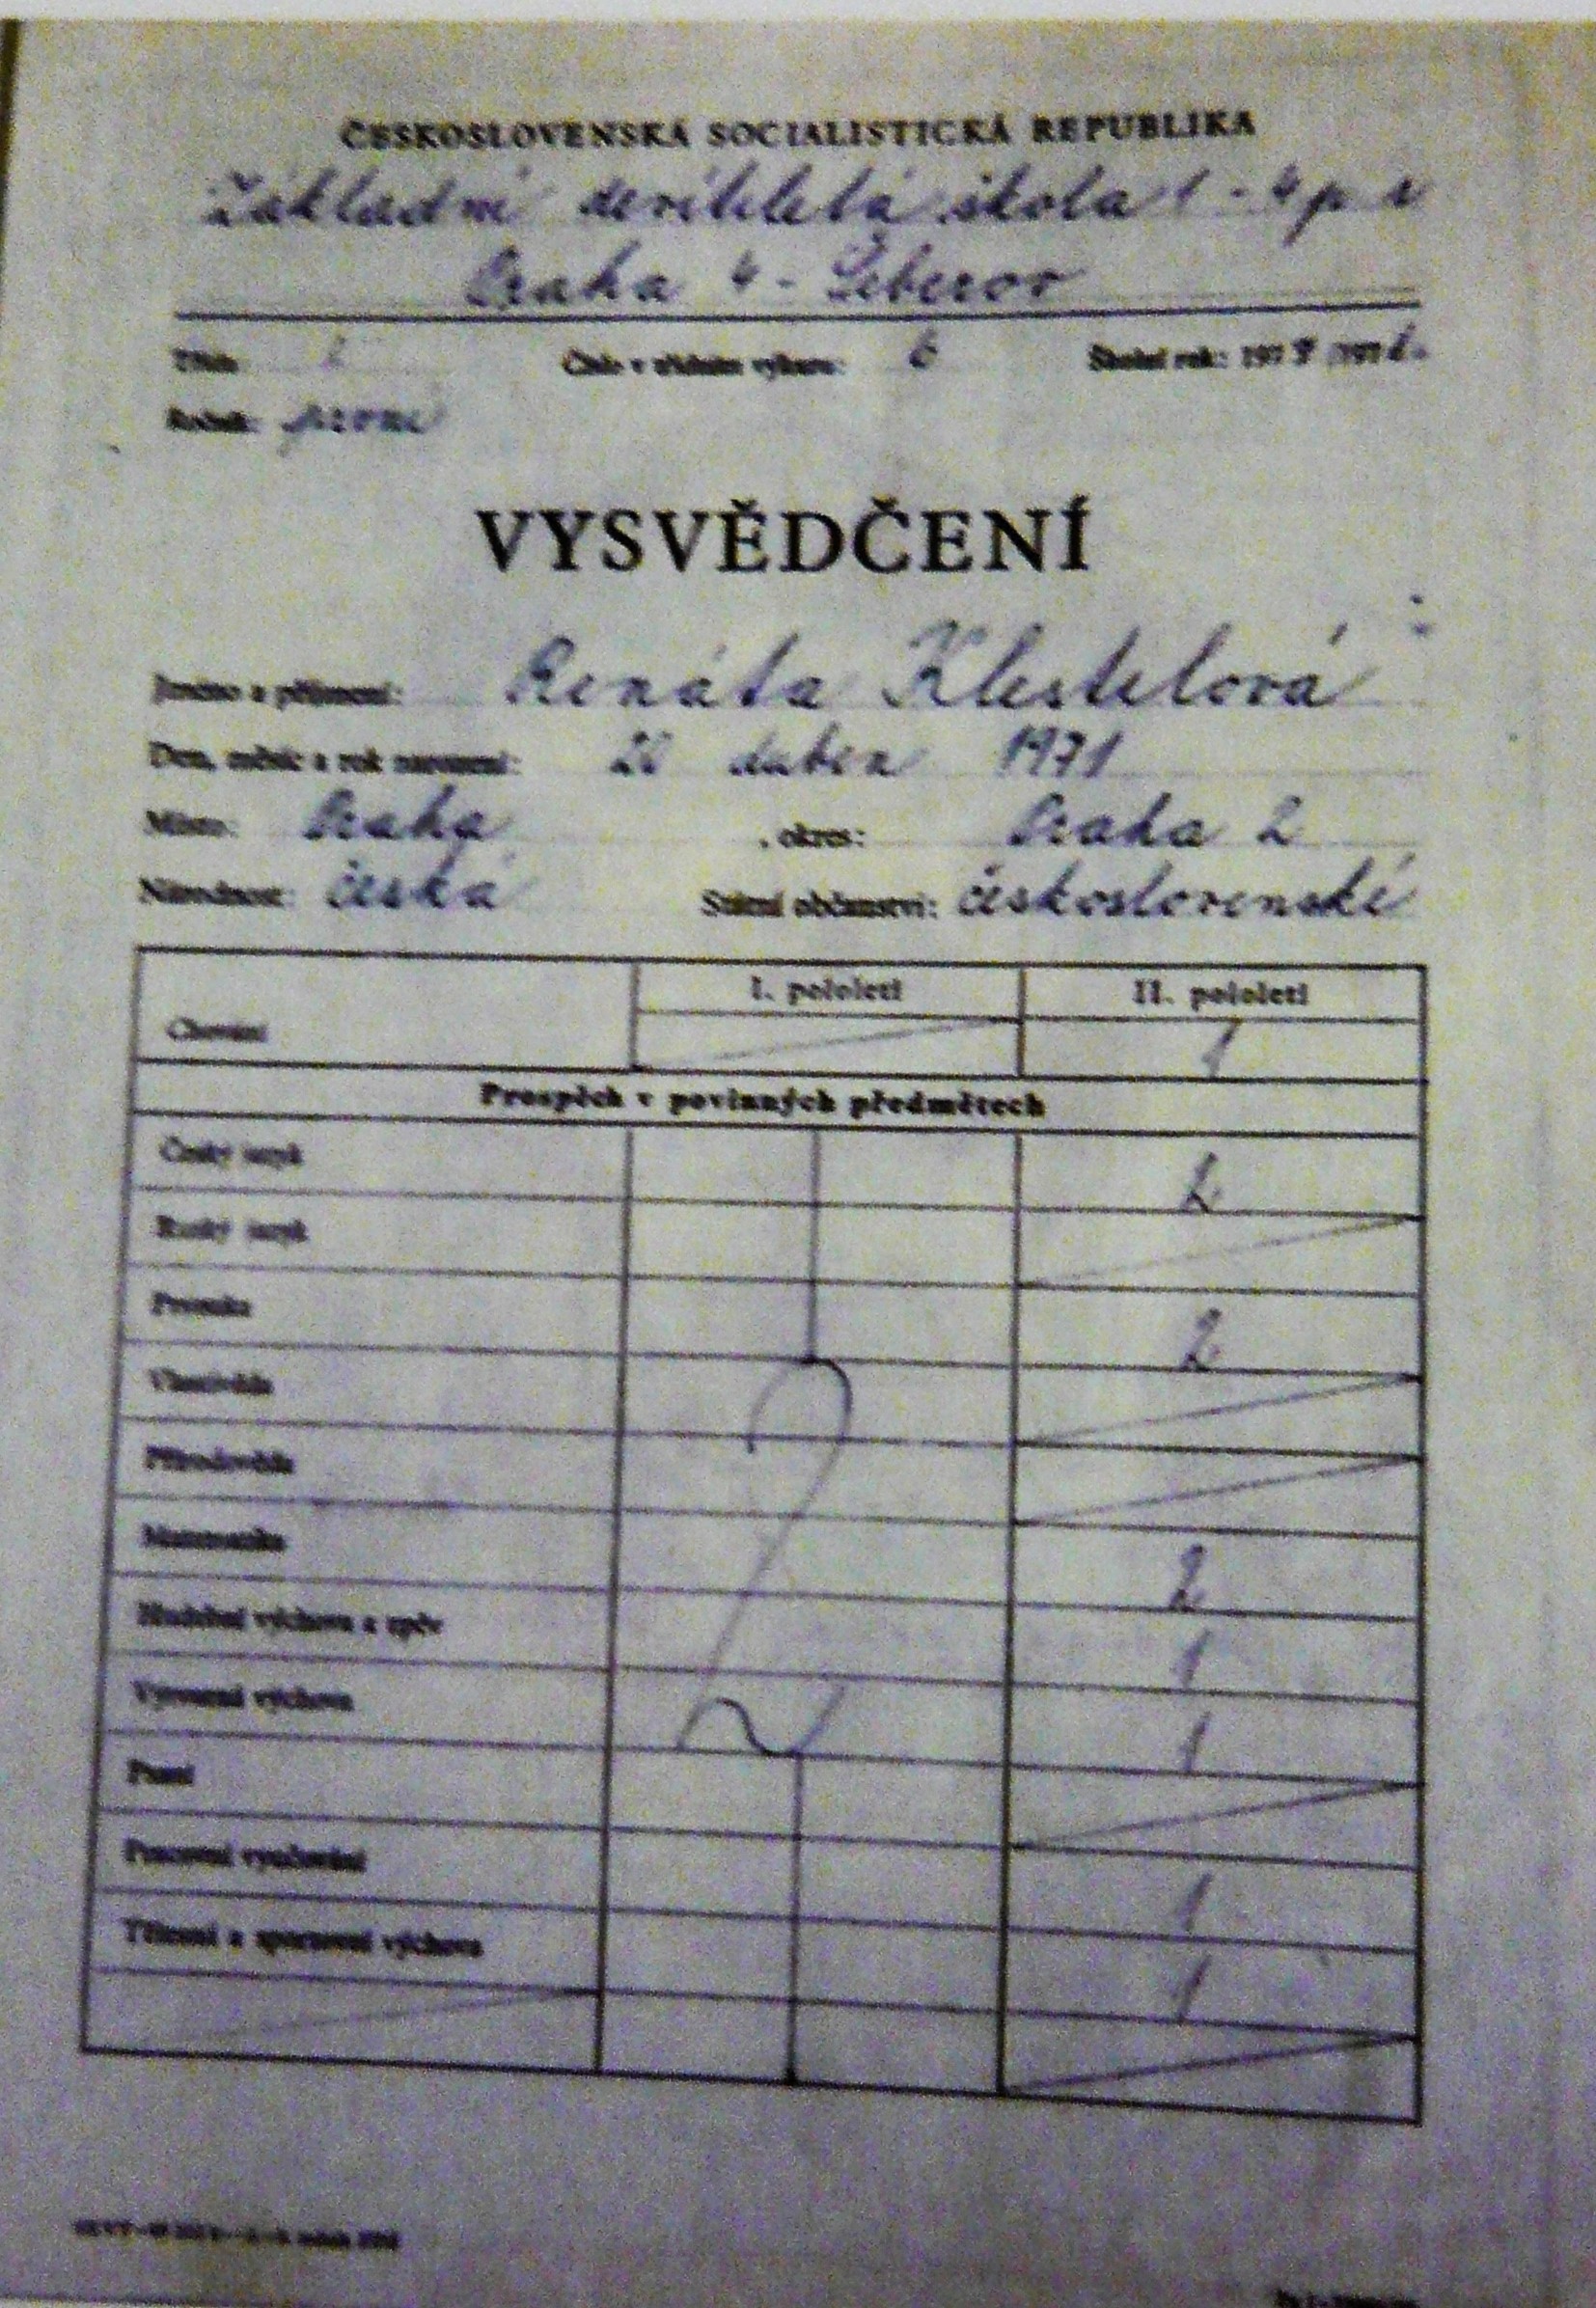 ČESKOSLOVENSKÁ SOCIALISTICKÁ REPUBLIKA
Základní devítiletá škola 1-4 p r
Praha 4 - Šeberov
Třída 1 Číslo v třídním výkazu: 6 Školní rok:
Ročník: první
VYSVĚDČENÍ
Jméno a příjmení: Renáta Klestilová
Den, měsíc a rok narození: duben 1971
Místo: Praha , okres: Praha 2
Národnost: česká Státní občanství: československé
I. pololetí II. pololetí
Chování 1
Prospěch v povinných předmětech
Český jazyk 2
Ruský jazyk
Prvouka 2
Vlastivěda
Přírodověda
Matematika 2
Hudební výchova a zpěv 1
Výtvarná výchova 1
Psaní
Pracovní vyučování 1
Tělesná a sportovní výchova 1